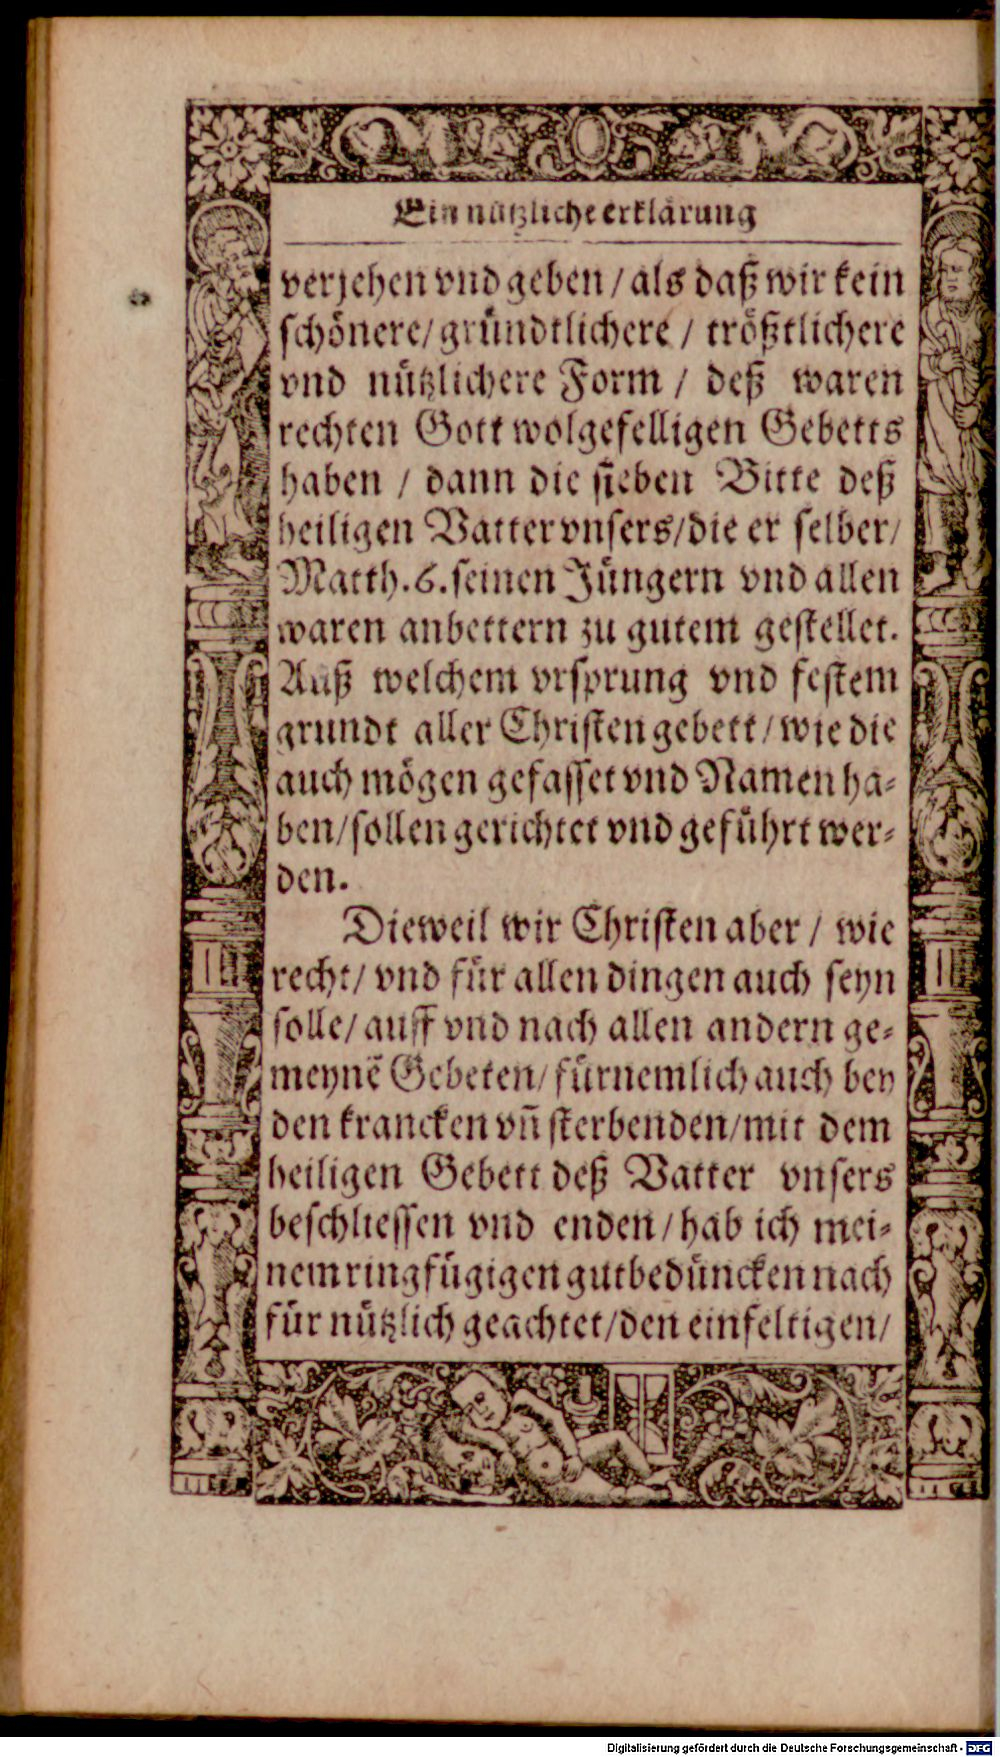 Ein nützliche erklärung
verjehen vnd geben / als daß wir kein
schönere/ gründtlichere / trößtlichere
vnd nützlichere Form / deß waren
rechten Gott wolgefelligen Gebetts
haben / dann die sieben Bitte deß
heiligen Vatter vnsers/die er selber/
Matth.6.seinen Jüngern vnd allen
waren anbettern zu gutem gestellet.
Auß welchem vrsprung vnd festem
grundt aller Christen gebett/ wie die
auch mögen gefasset vnd Namen ha-
ben/sollen gerichtet vnd geführt wer-
den.
Dieweil wir Christen aber / wie
recht/ vnd für allen dingen auch seyn
solle/ auff vnd nach allen andern ge-
meynē Gebeten/ fürnemlich auch bey
den krancken vñ sterbenden/mit dem
heiligen Gebett deß Vatter vnsers
beschliessen vnd enden / hab ich mei-
nem ringfügigen gutbedüncken nach
für nützlich geachtet/den einfeltigen/
Digitalisierung gefördert durch die Deutsche Forschungsgemeinschaft - DFG